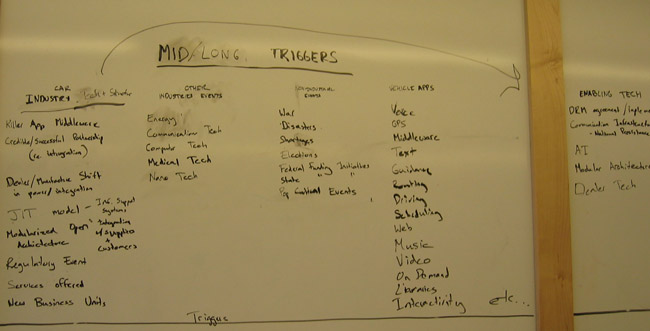 MID/LONG TRIGGERS
CAR
INDUSTRY
Killer App Middleware
Credible/Successful Partnership
(re: Integration)
Dealer/Manufacture Shift
in power/integration
JIT model - Inf. Support
Systems
Modularized Open
Architecture
Integrating
w/ Suppliers
+
Customers
Regulatory Event
Services offered
New Business Units
OTHER
INDUSTRIES EVENTS
Energy
Communication Tech
Computer Tech
Medical Tech
Nano Tech
EVENTS
War
Disasters
Shortages
Elections
Federal Funding Initiatives
State " "
Pop Cultural Events
VEHICLE APPS
Voice
GPS
Middleware
Text
Guidance
Routing
Driving
Scheduling
Web
Music
Video
On Demand
Libraries
Interactivity etc...
Triggers
ENABLING TECH
DRM agreement/
Communication
- National
AI
Modular Architecture
Dealer Tech